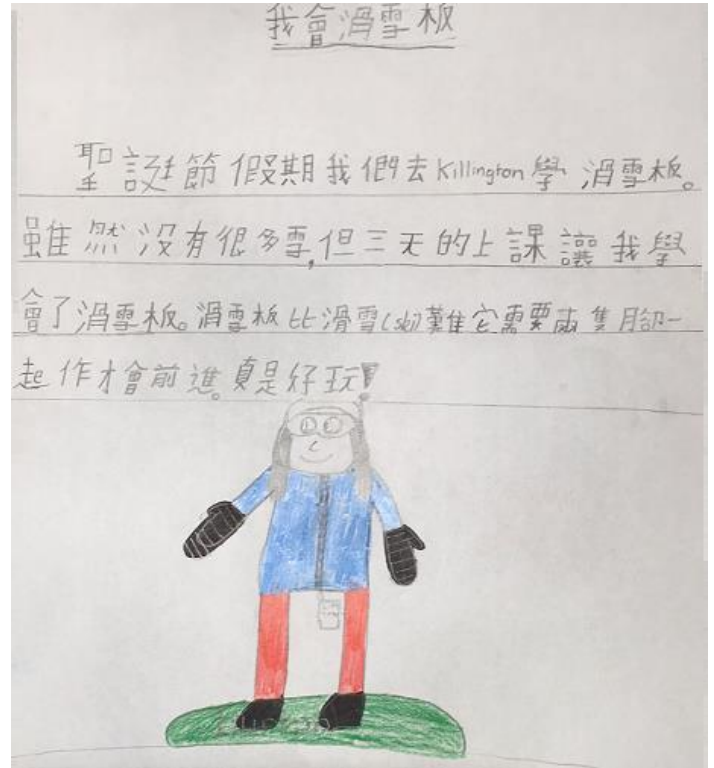 我會滑雪板
聖誕節假期我們去Killington學滑雪板。
雖然沒有很多雪,但三天的上課讓我學
會了滑雪板。滑雪板比滑雪(ski)難它需要兩隻腳一
起作才會前進。真是好玩!